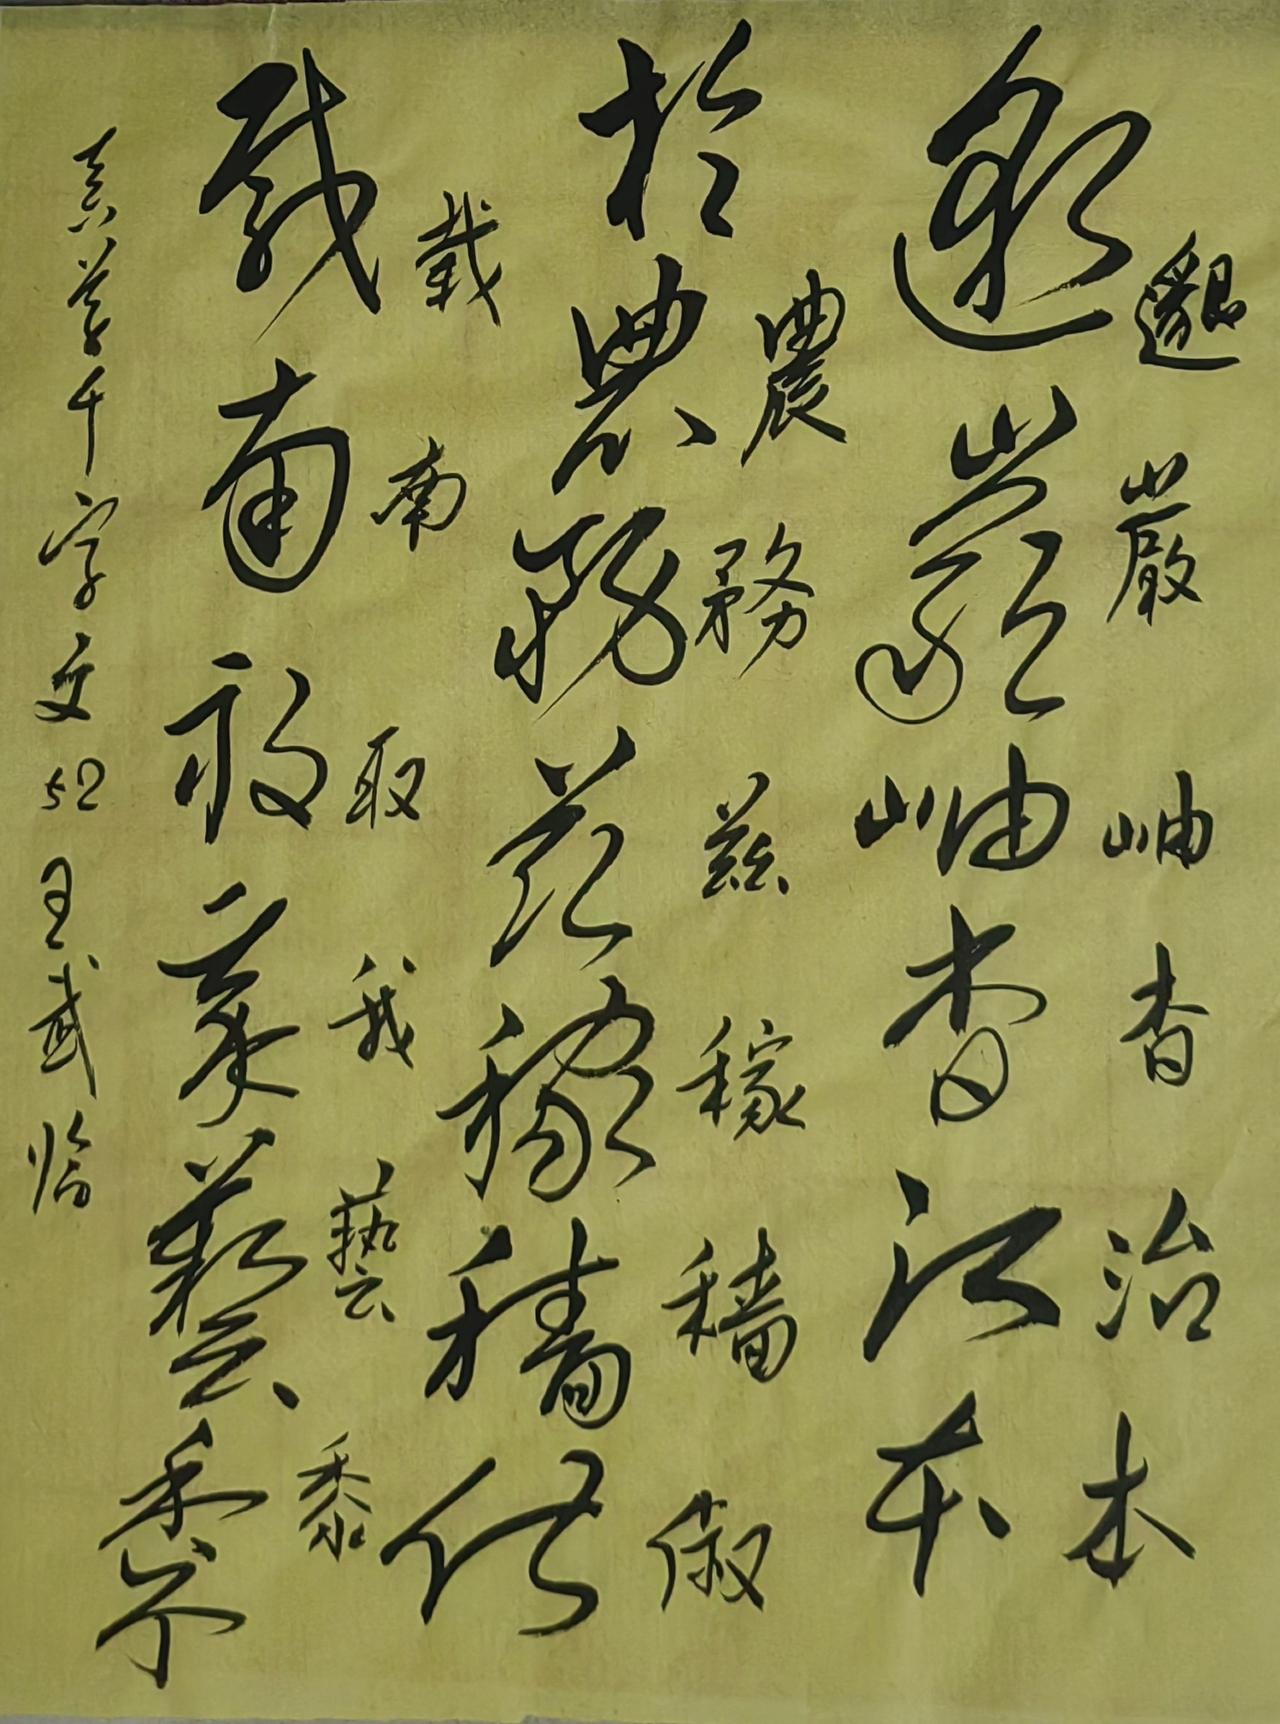 邈巖岫杳治本
邈巖岫杳治本
農務茲稼穡俶
於農務茲稼穡俶
載南取我藝黍
載南畝我藝黍
真草千字文52王武